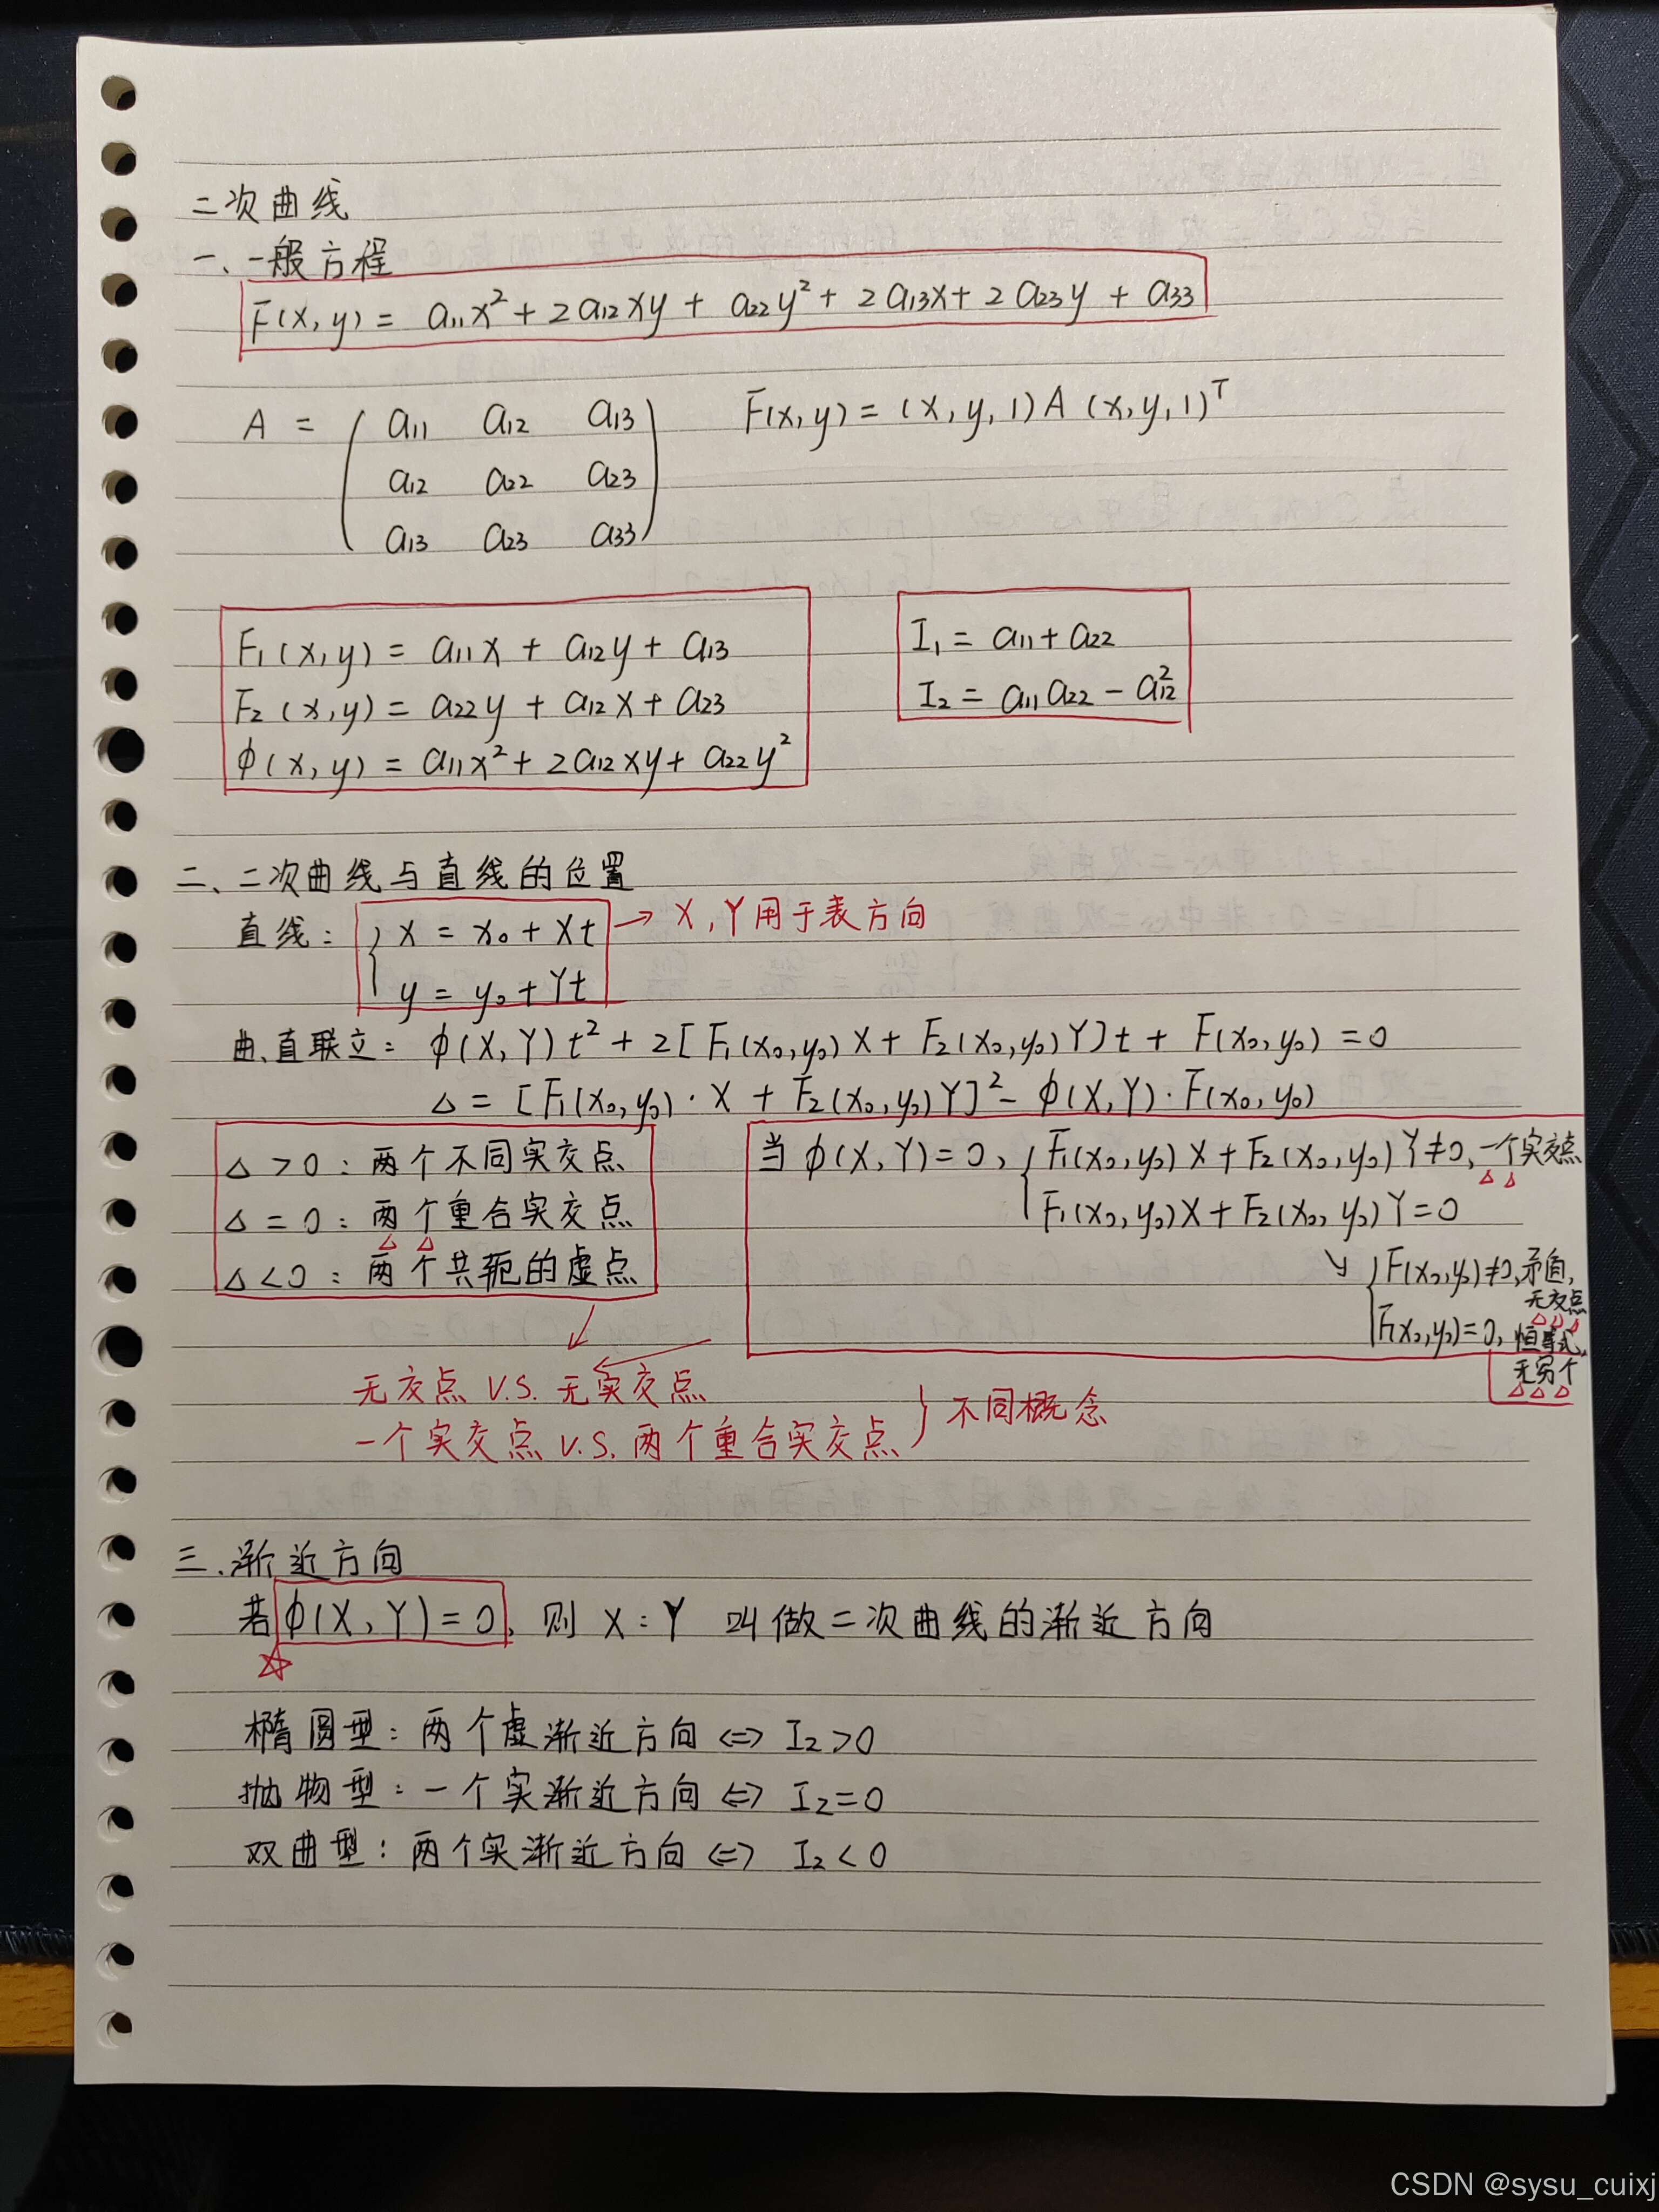 二次曲线
一、一般方程
F(x,y) = a₁₁x² + 2a₁₂xy + a₂₂y² + 2a₁₃x + 2a₂₃y + a₃₃
A = ( a₁₁ a₁₂ a₁₃ F(x,y) = (x,y,1) A (x,y,1)ᵀ
a₁₂ a₂₂ a₂₃
a₁₃ a₂₃ a₃₃ )
F₁(x,y) = a₁₁x + a₁₂y + a₁₃
F₂(x,y) = a₂₂y + a₁₂x + a₂₃
ϕ(x,y) = a₁₁x² + 2a₁₂xy + a₂₂y²
I₁ = a₁₁ + a₂₂
I₂ = a₁₁a₂₂ - a₁₂²
二、二次曲线与直线的位置
直线: { x = x₀ + Xt → X,Y用于表方向
y = y₀ + Yt
曲、直联立: ϕ(X,Y)t² + 2[F₁(x₀,y₀)X + F₂(x₀,y₀)Y]t + F(x₀,y₀) = 0
Δ = [F₁(x₀,y₀)·X + F₂(x₀,y₀)Y]² - ϕ(X,Y)·F(x₀,y₀)
Δ > 0: 两个不同实交点
Δ = 0: 两个重合实交点
Δ < 0: 两个共轭的虚点
当 ϕ(X,Y) = 0, { F₁(x₀,y₀)X + F₂(x₀,y₀)Y ≠ 0, 一个实交点
F₁(x₀,y₀)X + F₂(x₀,y₀)Y = 0
↘ { F(x₀,y₀) ≠ 0, 矛盾,
无交点
F(x₀,y₀) = 0, 恒等式,
无穷个
无交点 V.S. 无实交点
一个实交点 V.S. 两个重合实交点 } 不同概念
三、渐近方向
若 ϕ(X,Y) = 0, 则 X:Y 叫做二次曲线的渐近方向
☆
椭圆型: 两个虚渐近方向 ⇔ I₂ > 0
抛物型: 一个实渐近方向 ⇔ I₂ = 0
双曲型: 两个实渐近方向 ⇔ I₂ < 0
CSDN @sysu_cuixj